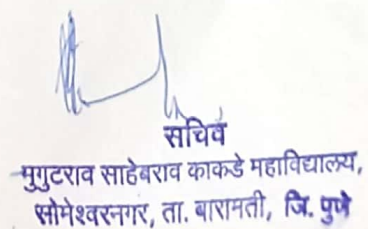 सचिव
मुगुटराव साहेबराव काकडे महाविद्यालय,
सोमेश्वरनगर, ता. बारामती, जि. पुणे